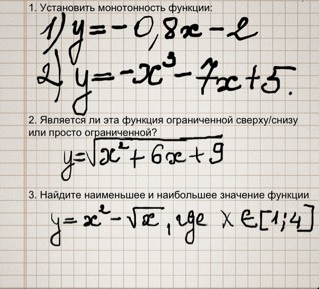 1. Установить монотонность функции:
1) y = -0,8x - 2
2) y = -x³ - 7x + 5.
2. Является ли эта функция ограниченной сверху/снизу
или просто ограниченной?
y = √(x² + 6x + 9)
3. Найдите наименьшее и наибольшее значение функции
y = x² - √x, где x ∈ [1; 4]